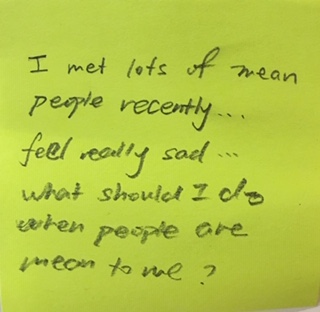 I met lots of mean
people recently...
feel really sad...
what should I do
when people are
mean to me?